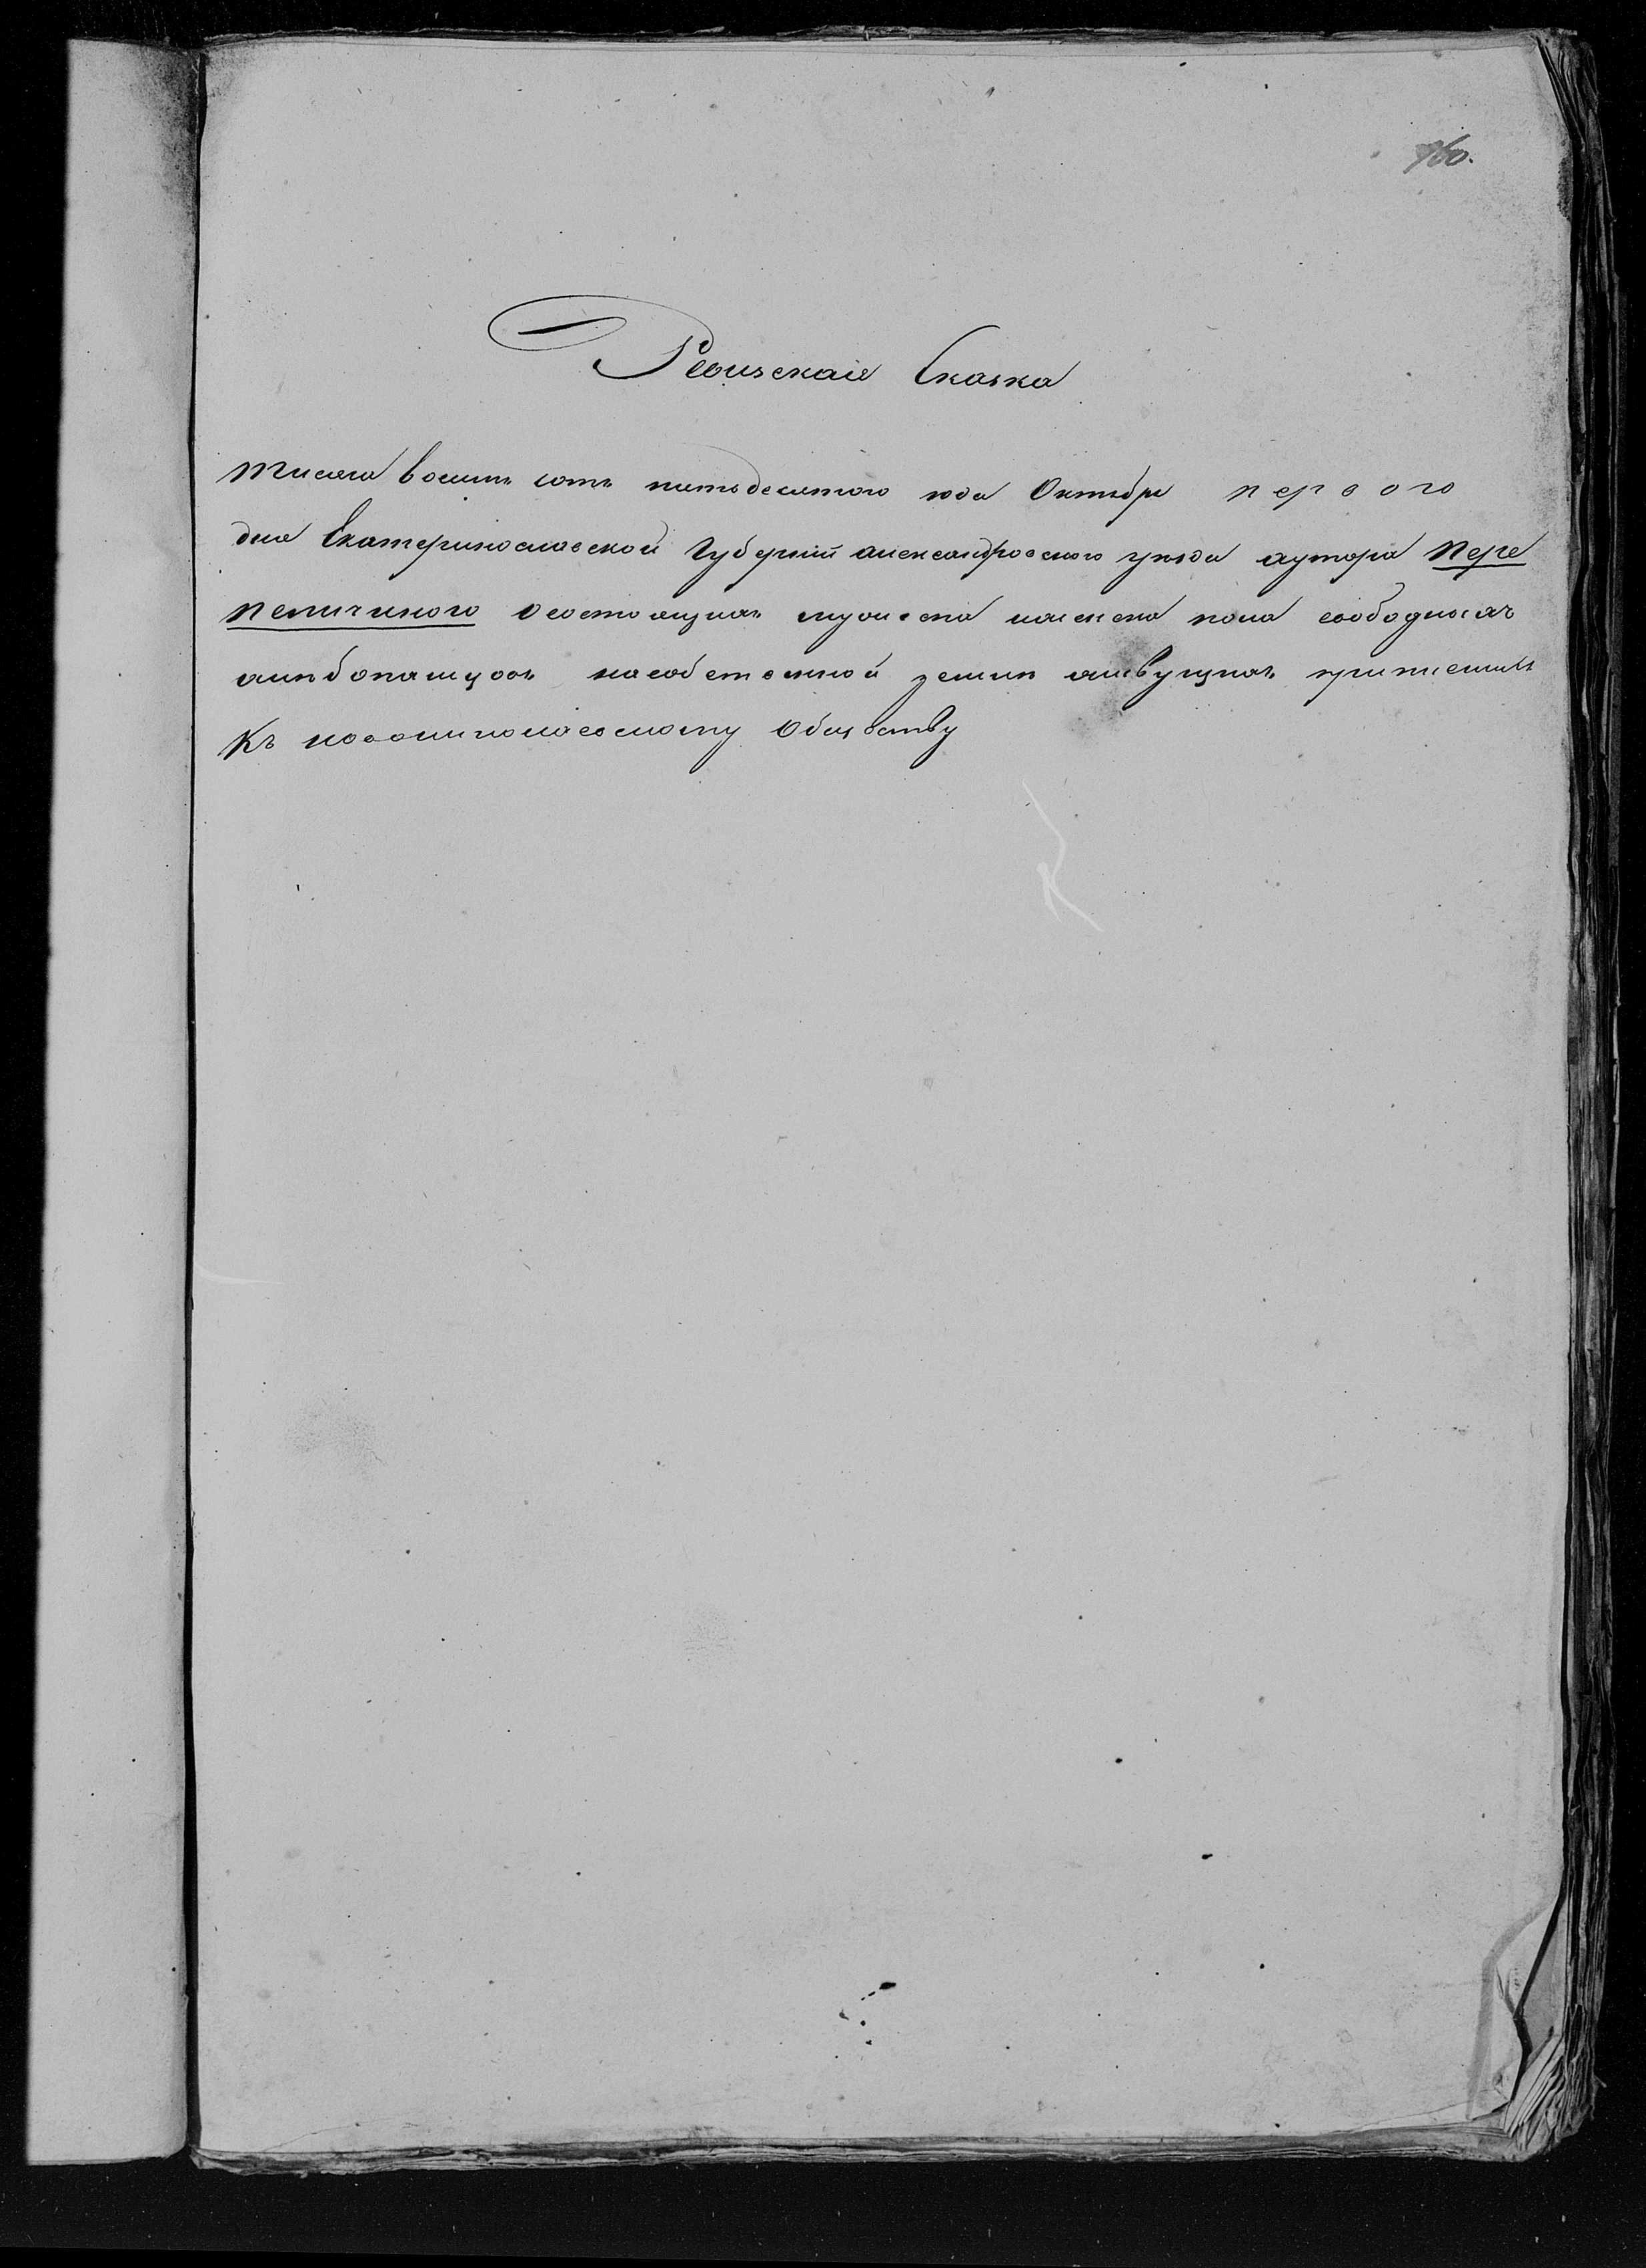 960.
Ревизская Сказка
тисяча восимъ сотъ пятьдесятого года Октября первого
дня Екатеринославской Губернии александровского уезда хутора Пере
пеличиного осостоящихъ мужеска иженска пола свободныхъ
хлебопашцовъ насобственной земли живущихъ причисленых
Къ новониколаевскому Обществу